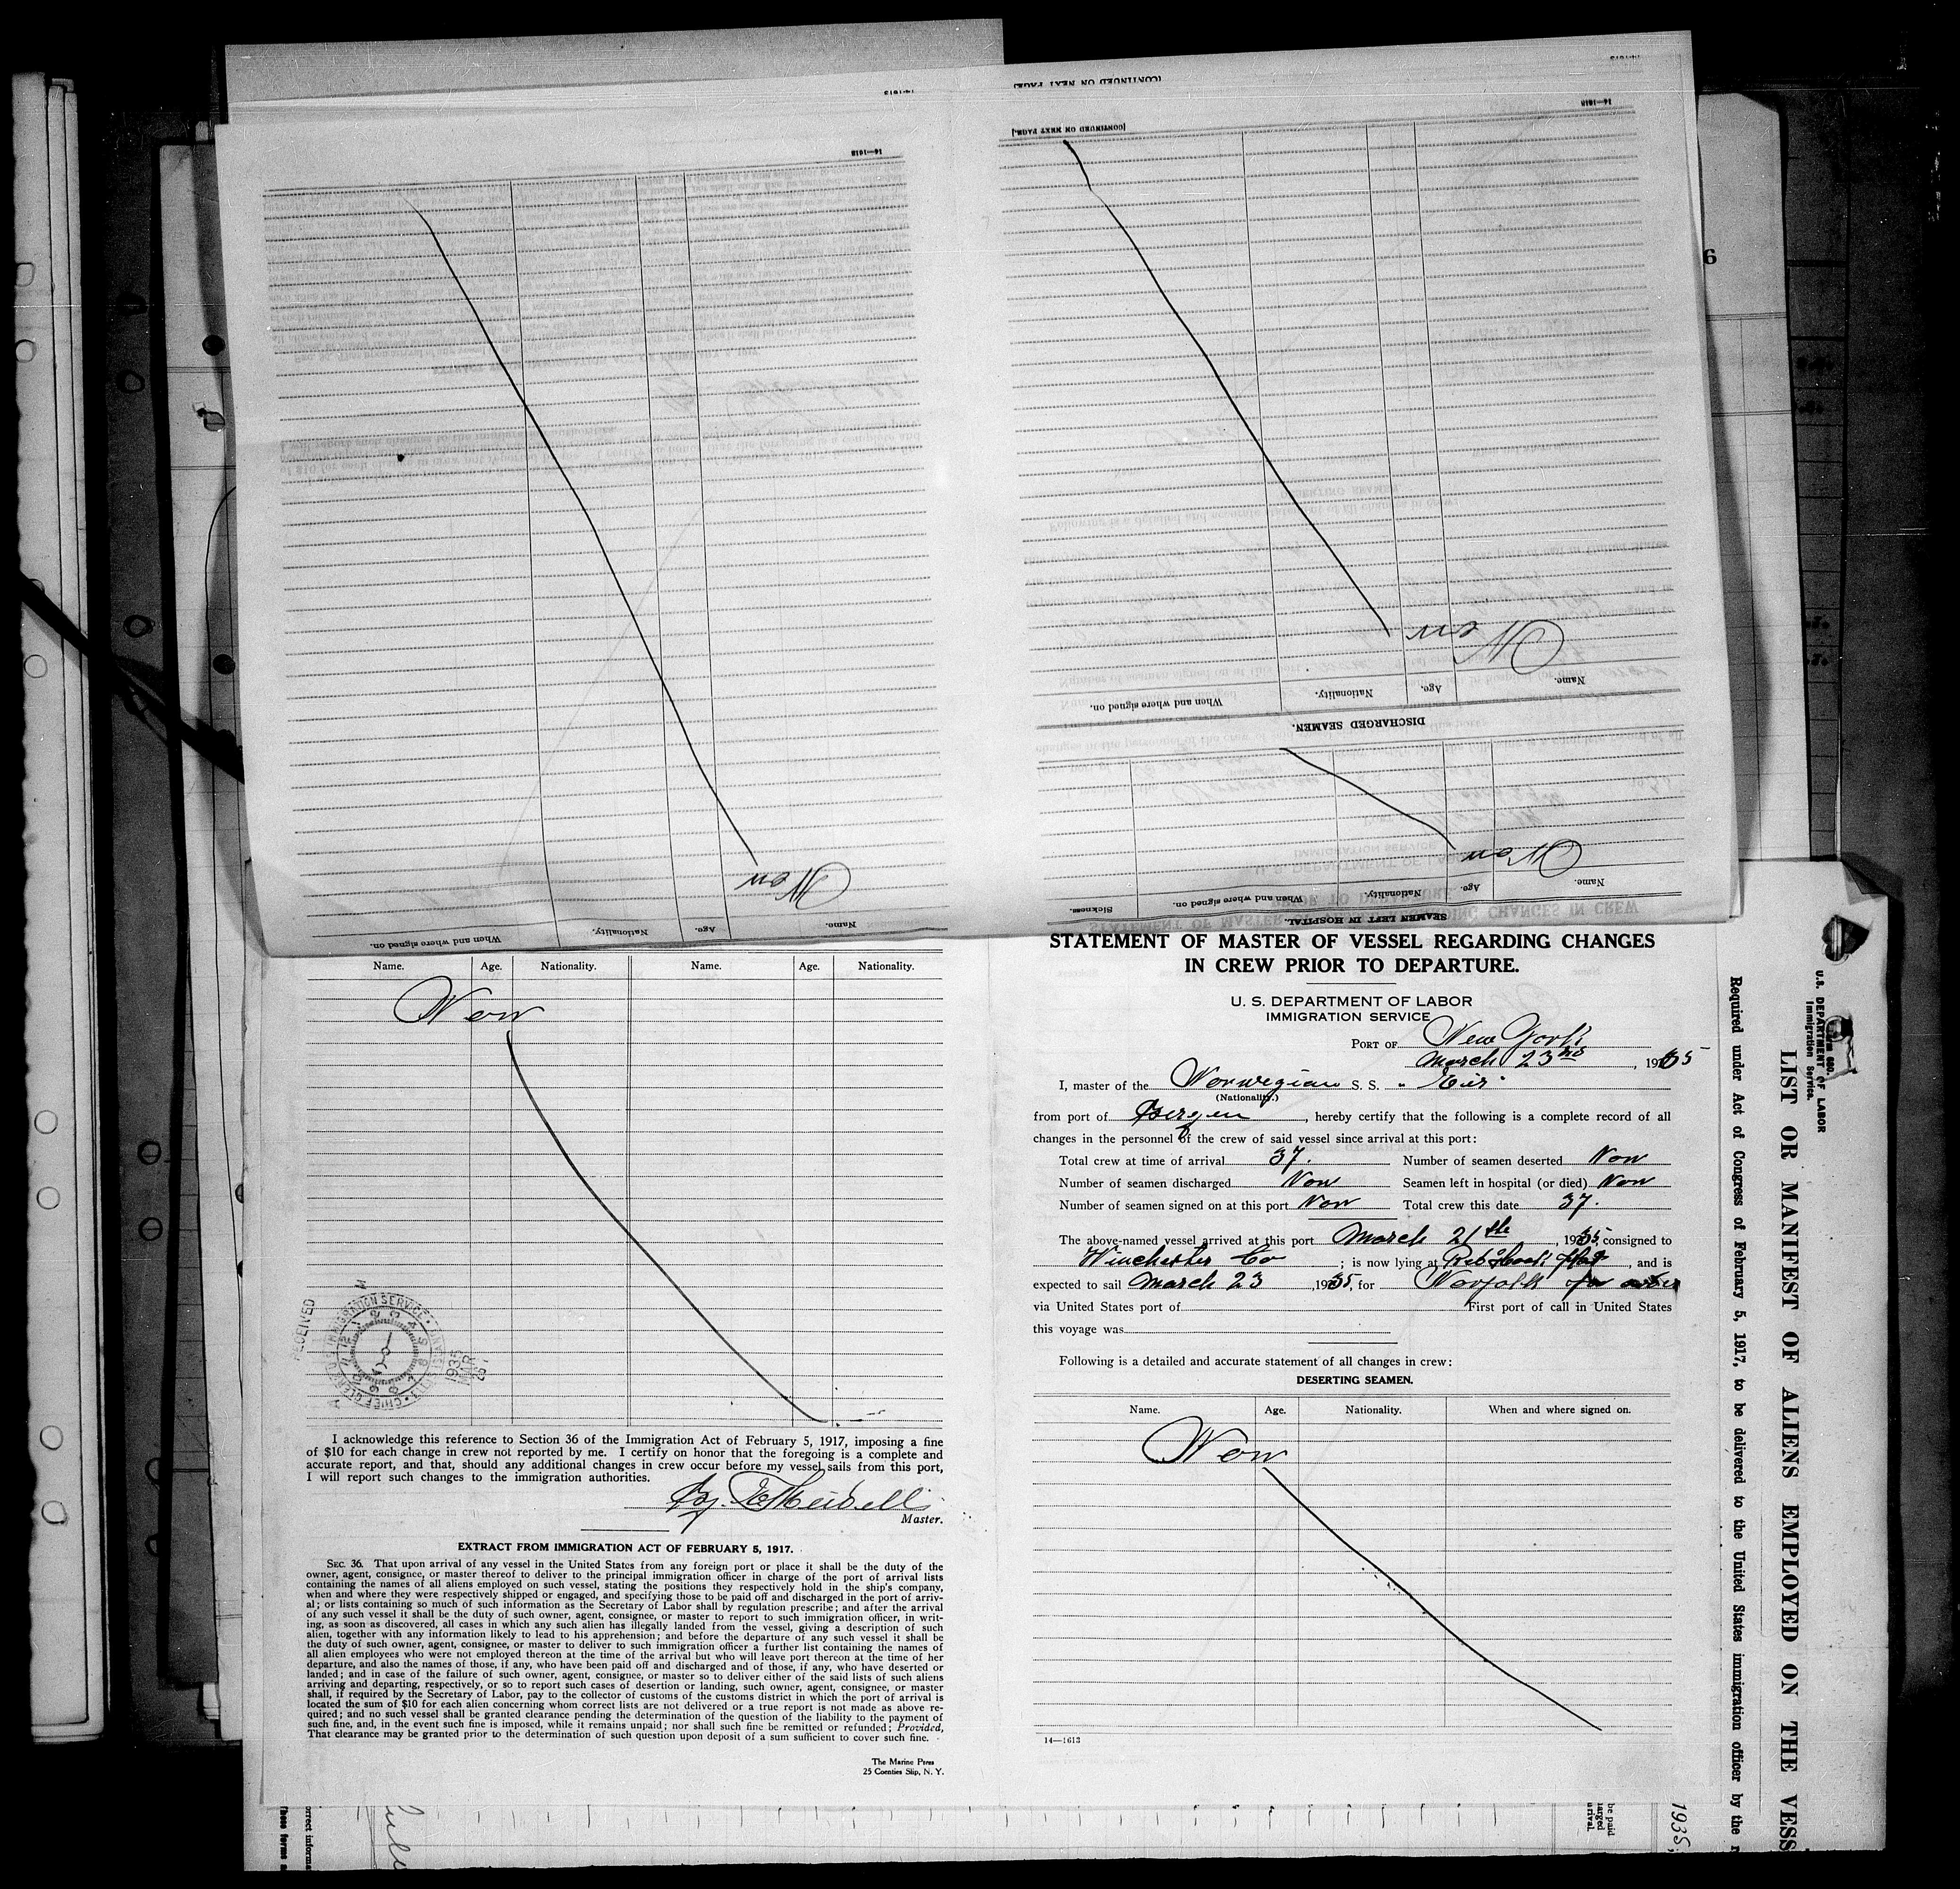 14-1613
(CONTINUED ON NEXT PAGE)
14-1613
14-1613
[CONTINUED ON NEXT PAGE.]
14-1613
Non
Name. Age. Nationality. When and where signed on.
DISCHARGED SEAMEN.
Non
Name. Age. Nationality. When and where signed on. Sickness.
SEAMEN LEFT IN HOSPITAL.
Non
Name. Age. Nationality. When and where signed on.
Name. Age. Nationality. Name. Age. Nationality.
Non
RECEIVED
U.S. IMMIGRATION SERVICE
CHIEF CLERK
1935 MAR 26
I acknowledge this reference to Section 36 of the Immigration Act of February 5, 1917, imposing a fine
of $10 for each change in crew not reported by me. I certify on honor that the foregoing is a complete and
accurate report, and that, should any additional changes in crew occur before my vessel sails from this port,
I will report such changes to the immigration authorities.
Master.
EXTRACT FROM IMMIGRATION ACT OF FEBRUARY 5, 1917.
SEC. 36. That upon arrival of any vessel in the United States from any foreign port or place it shall be the duty of the
owner, agent, consignee, or master thereof to deliver to the principal immigration officer in charge of the port of arrival lists
containing the names of all aliens employed on such vessel, stating the positions they respectively hold in the ship's company,
when and where they were respectively shipped or engaged, and specifying those to be paid off and discharged in the port of arriv-
al; or lists containing so much of such information as the Secretary of Labor shall by regulation prescribe; and after the arrival
of any such vessel it shall be the duty of such owner, agent, consignee, or master to report to such immigration officer, in writ-
ing, as soon as discovered, all cases in which any such alien has illegally landed from the vessel, giving a description of such
alien, together with any information likely to lead to his apprehension; and before the departure of any such vessel it shall be
the duty of such owner, agent, consignee, or master to deliver to such immigration officer a further list containing the names of
all alien employees who were not employed thereon at the time of the arrival but who will leave port thereon at the time of her
departure, and also the names of those, if any, who have been paid off and discharged and of those, if any, who have deserted or
landed; and in case of the failure of such owner, agent, consignee, or master so to deliver either of the said lists of such aliens
arriving and departing, respectively, or so to report such cases of desertion or landing, such owner, agent, consignee, or master
shall, if required by the Secretary of Labor, pay to the collector of customs of the customs district in which the port of arrival is
located the sum of $10 for each alien concerning whom correct lists are not delivered or a true report is not made as above re-
quired; and no such vessel shall be granted clearance pending the determination of the question of the liability to the payment of
such fine, and, in the event such fine is imposed, while it remains unpaid; nor shall such fine be remitted or refunded; Provided,
That clearance may be granted prior to the determination of such question upon deposit of a sum sufficient to cover such fine.
The Marine Press
25 Coenties Slip, N. Y.
STATEMENT OF MASTER OF VESSEL REGARDING CHANGES
IN CREW PRIOR TO DEPARTURE.
U. S. DEPARTMENT OF LABOR
IMMIGRATION SERVICE
PORT OF New York
March 23rd, 1935
I, master of the Norwegian S. S. "Eir"
(Nationality.)
from port of Bergen, hereby certify that the following is a complete record of all
changes in the personnel of the crew of said vessel since arrival at this port:
Total crew at time of arrival 37. Number of seamen deserted Non
Number of seamen discharged Non Seamen left in hospital (or died) Non
Number of seamen signed on at this port Non Total crew this date 37.
The above-named vessel arrived at this port March 21th, 1935, consigned to
Winchester Co; is now lying at, and is
expected to sail March 23 1935, for Norfolk for
via United States port of First port of call in United States
this voyage was
Following is a detailed and accurate statement of all changes in crew:
DESERTING SEAMEN.
Name. Age. Nationality. When and where signed on.
Non
14—1613
Required under Act of Congress of February 5, 1917, to be delivered to the United States immigration officer by the
LIST OR MANIFEST OF ALIENS EMPLOYED ON THE VESS
U.S. DEPARTMENT OF LABOR
Immigration Service.
6
1935
be paid
arged
rrival.
orrect informa
these forms a